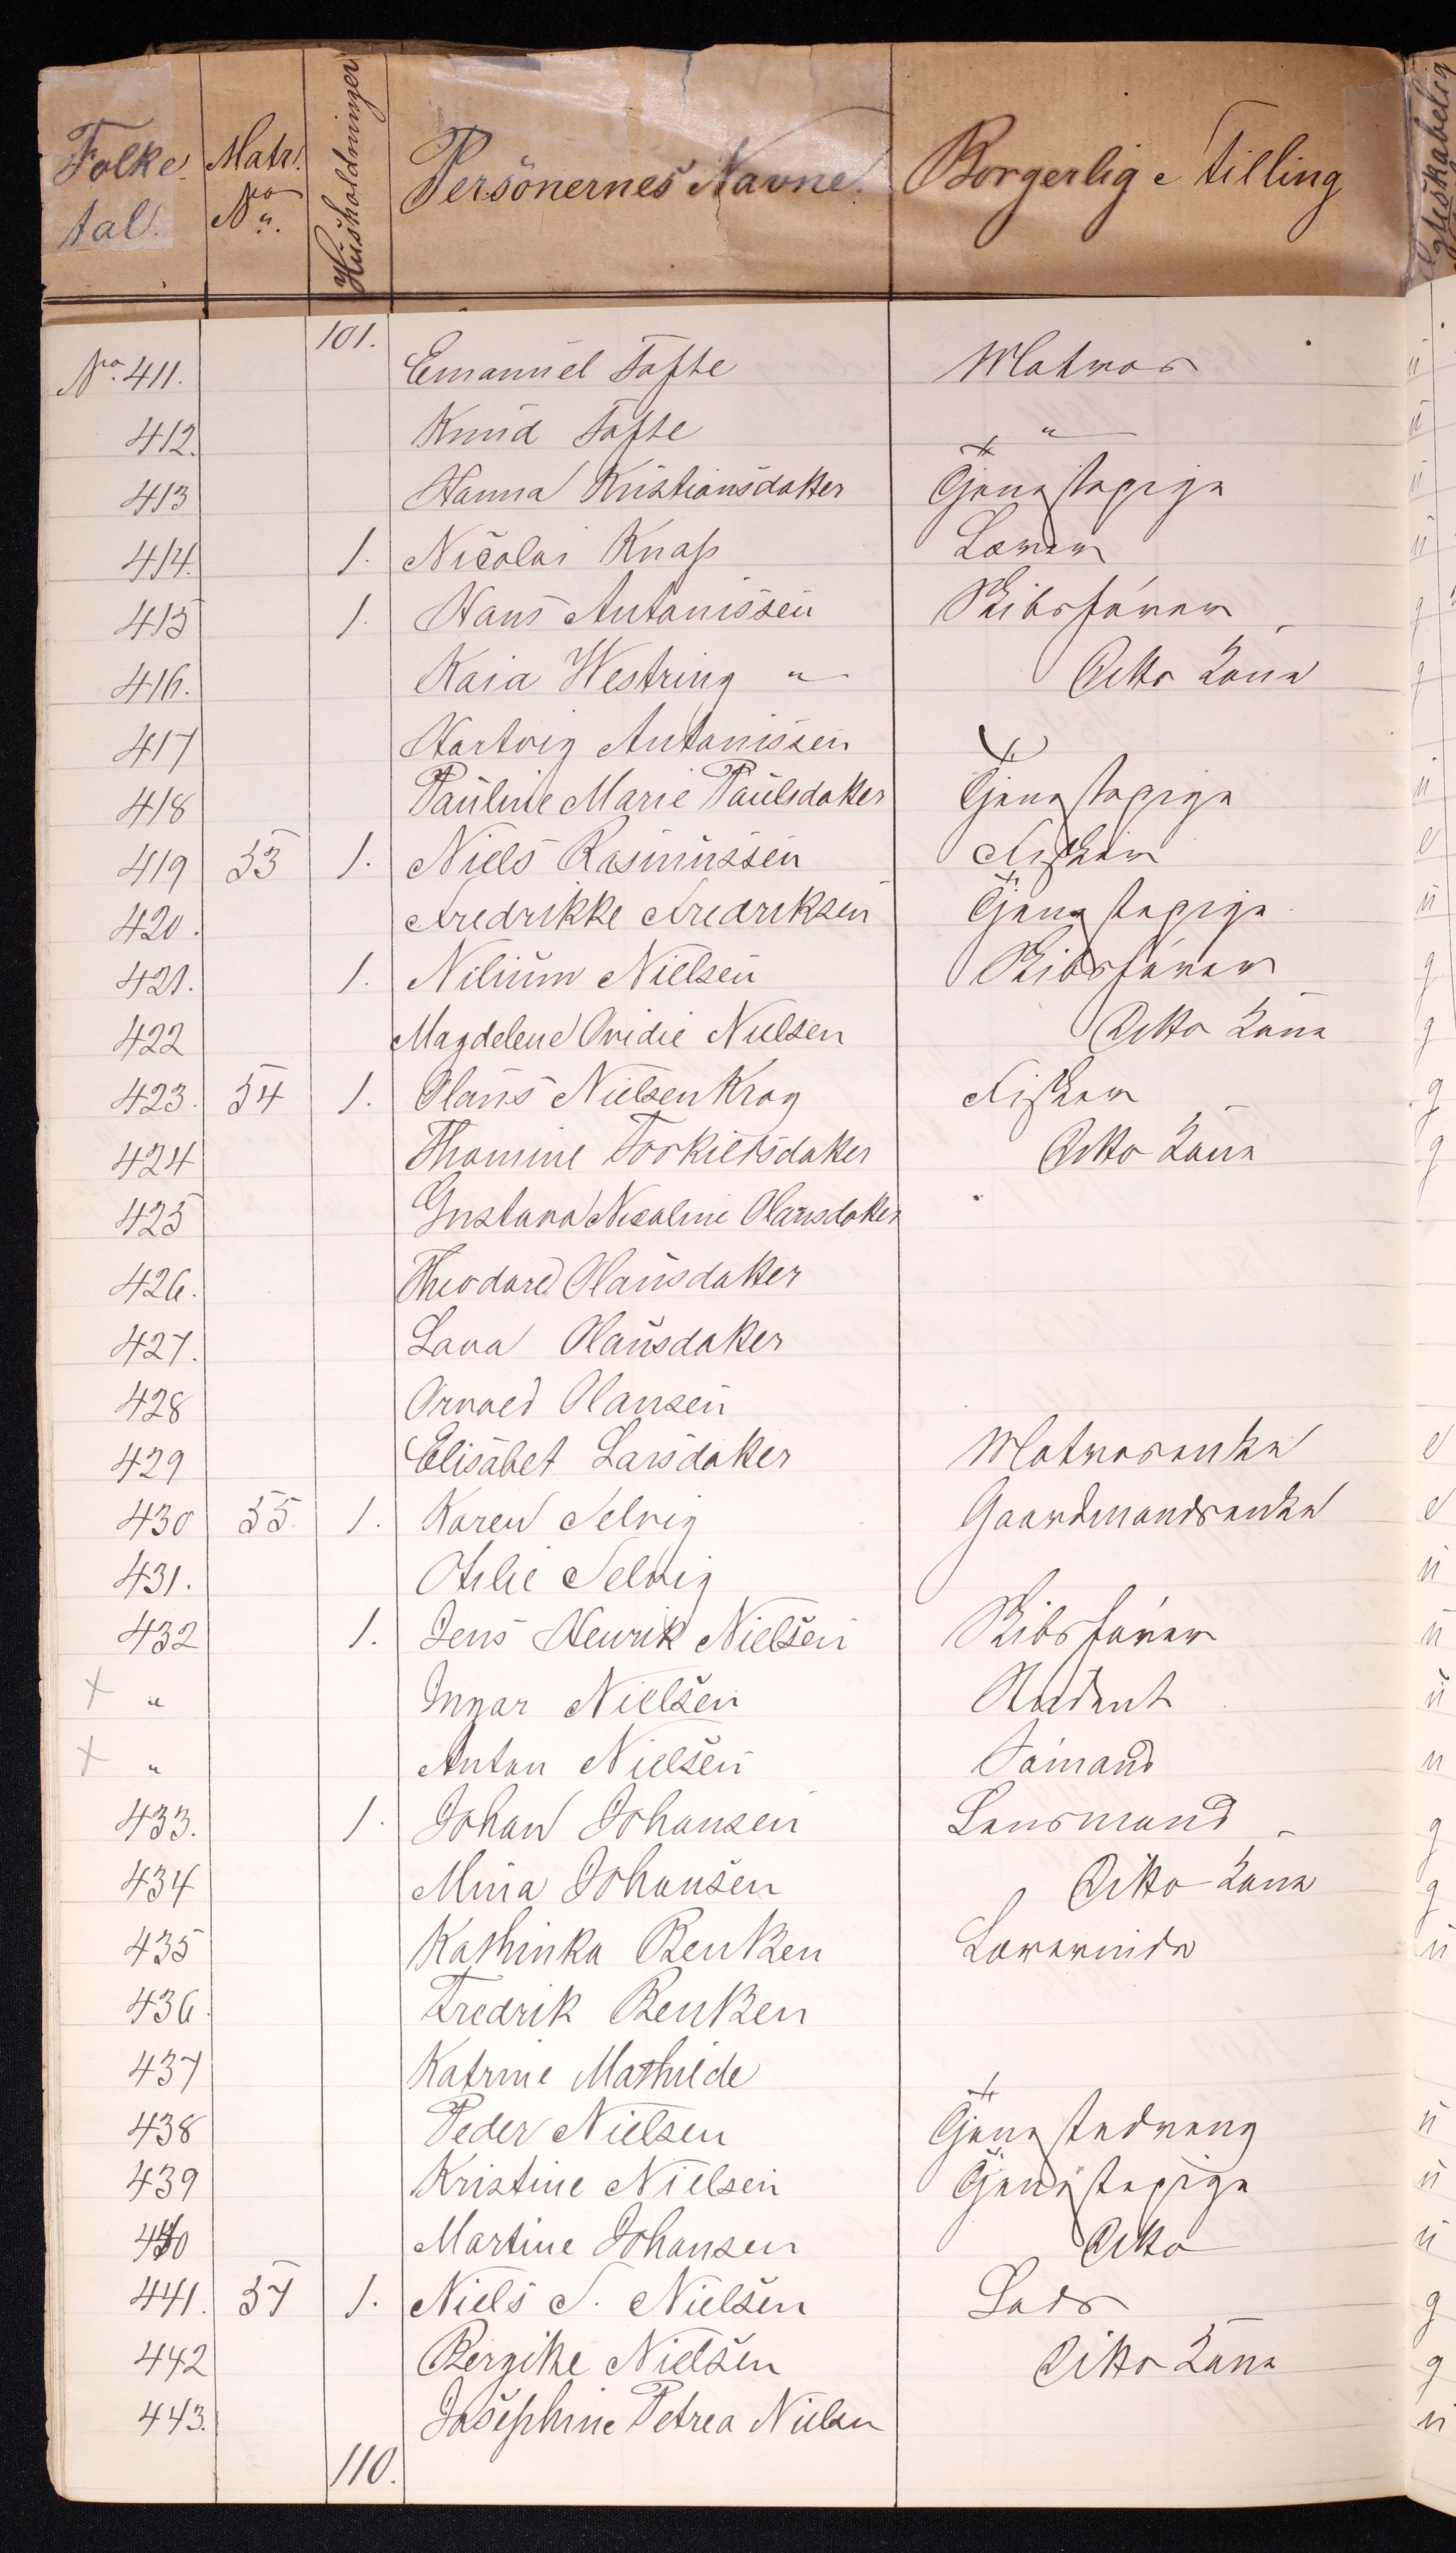 Folketal. Matr. No. Husholdninger Personernes Navne. Borgerlig Stilling
101.
No. 411. Emanuel Tofte Matros
412. Knud Tofte "
413 Hanna Kristiansdatter Tjenestepige
414. 1. Nicolai Knap Lærer
415 1. Hans Antonissen Skibsfører
416. Kaia Westring " Ditto Kone
417 Hartvig Antonissen
418 Pauline Marie Paulsdatter Tjenestepige
419 53 1. Niels Rasmussen Fisker
420. Fredrikke Fredriksen Tjenestepige
421. 1. Nilium Nielsen Skibsfører
422 Magdelene Ovidie Nielsen Ditto Kone
423. 54 1. Olaus Nielsen Krog Fisker
424 Thomine Torkildsdatter Ditto Kone
425 Gustava Nicoline Olausdatter
426. Theodore Olausdatter
427. Lava Olausdatter
428 Orvald Olausen
429 Elisabet Larsdatter Matrosenke
430 55. 1. Karen Selvig Gaardmandsenke
431. Otilie Selvig
432 1. Jens Henrik Nielsen Skibsfører
+ " Ingar Nielsen Student
+ " Anton Nielsen Sømand
433. 1. Johan Johansen Lensmand
434 Mina Johansen Ditto Kone
435 Kathinka Benken Lærerinde
436. Fredrik Benken
437 Katrine Mathilde
438 Peder Nielsen Tjenestedreng
439 Kristine Nielsen Tjenestepige
440 Martine Johansen Ditto
441. 57 1. Niels S. Nielsen Lods
442 Bergitte Nielsen Ditto Kone
443. Josephine Petrea Nielsen
110.